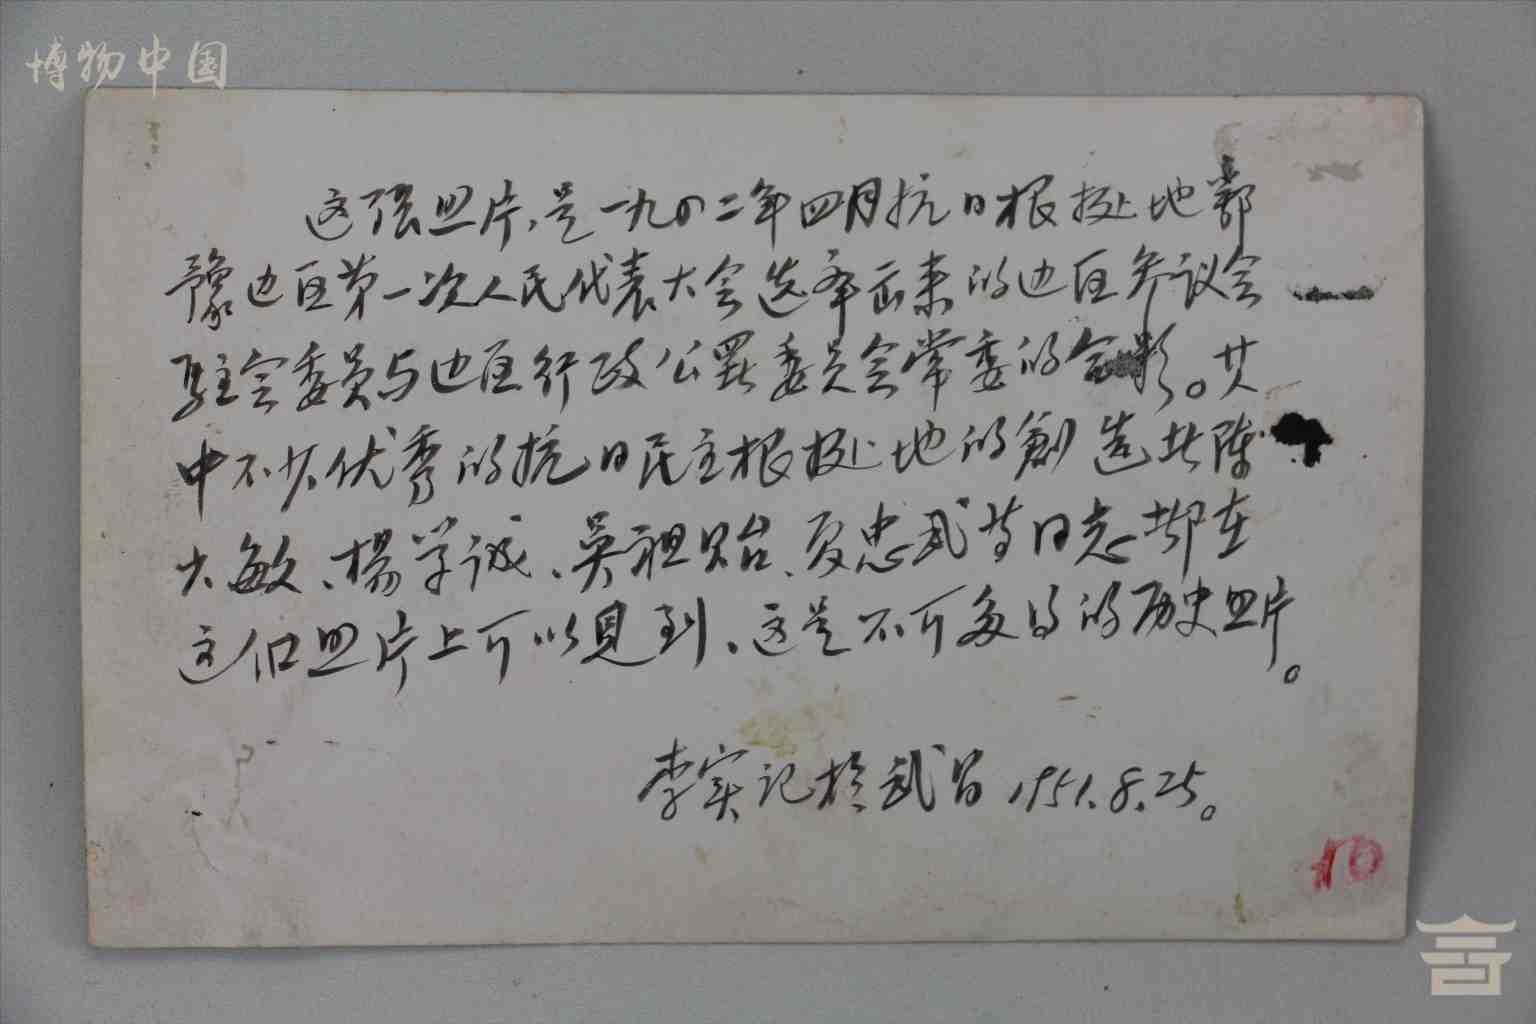 博物中国
这张照片，是一九四二年四月抗日根据地鄂
豫边区第一次人民代表大会选举出来的边区参议会
驻会委员与边区行政公署委员会常委的合影。其
中不少优秀的抗日民主根据地的創造者陈
少敏、楊学诚、吴祖贻、夏忠武等同志都在
这个照片上可以見到、这是不可多得的历史照片。
李实记於武昌1951.8.25。
10